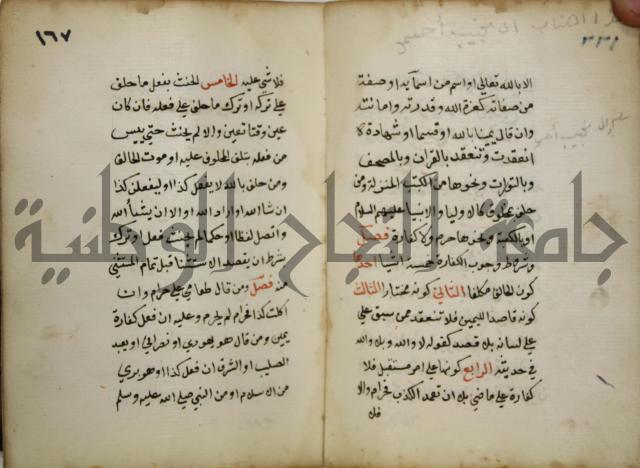 ٢٣١
الا بالله تعالى او اسم من اسمآيه او صفة
من صفاته كعزة الله وقدرته وامانته
وان قال يمينا بالله او قسما او شهادة
انعقدت وتنعقد بالقران وبالمصحف
وبالتورات ونحوها من الكتب المنزلة ومن
حلف بمخلوق كالاوليا والانبيا عليهم السلام
او بالكعبة ونحوها حرم ولا كفارة فصل
وشروط وجوب الكفارة خمسة اشيا احدها
كون الحالف مكلفا الثاني كونه مختارا الثالث
كونه قاصدا لليمين فلا تنعقد ممن سبق على
على لسانه بلا قصد كقوله لا والله وبلى والله
في حديثه الرابع كونها على امر مستقبل فلا
كفارة على ماضي بل ان تعمد الكذب فحرام والا
فلا
١٦٧
فلا شي عليه الخامس الحنث بفعل ما حلف
على تركه او ترك ما حلف على فعله فان كان
عين وقتا تعين والا لم يحنث حتى ييس
من فعله بتلف المحلوف عليه او موت الحالف
ومن حلف بالله لا يفعل كذا او ليفعلن كذا
ان شا الله او اراد الله او الا ان يشا الله
واتصل لفظا او حكما لم يحنث فعل او ترك
بشرط ان يقصد الاستثنا قبل تمام المستثنى
منه فصل ومن قال طعامي علي حرام وان
اكلت كذا فحرام لم يحرم وعليه ان فعل كفارة
يمين ومن قال هو يهودي او نصراني او يعبد
الصليب او الشرق ان فعل كذا او هو بري
من الاسلام او من النبي صلى الله عليه وسلم
جامعة النجاح الوطنية